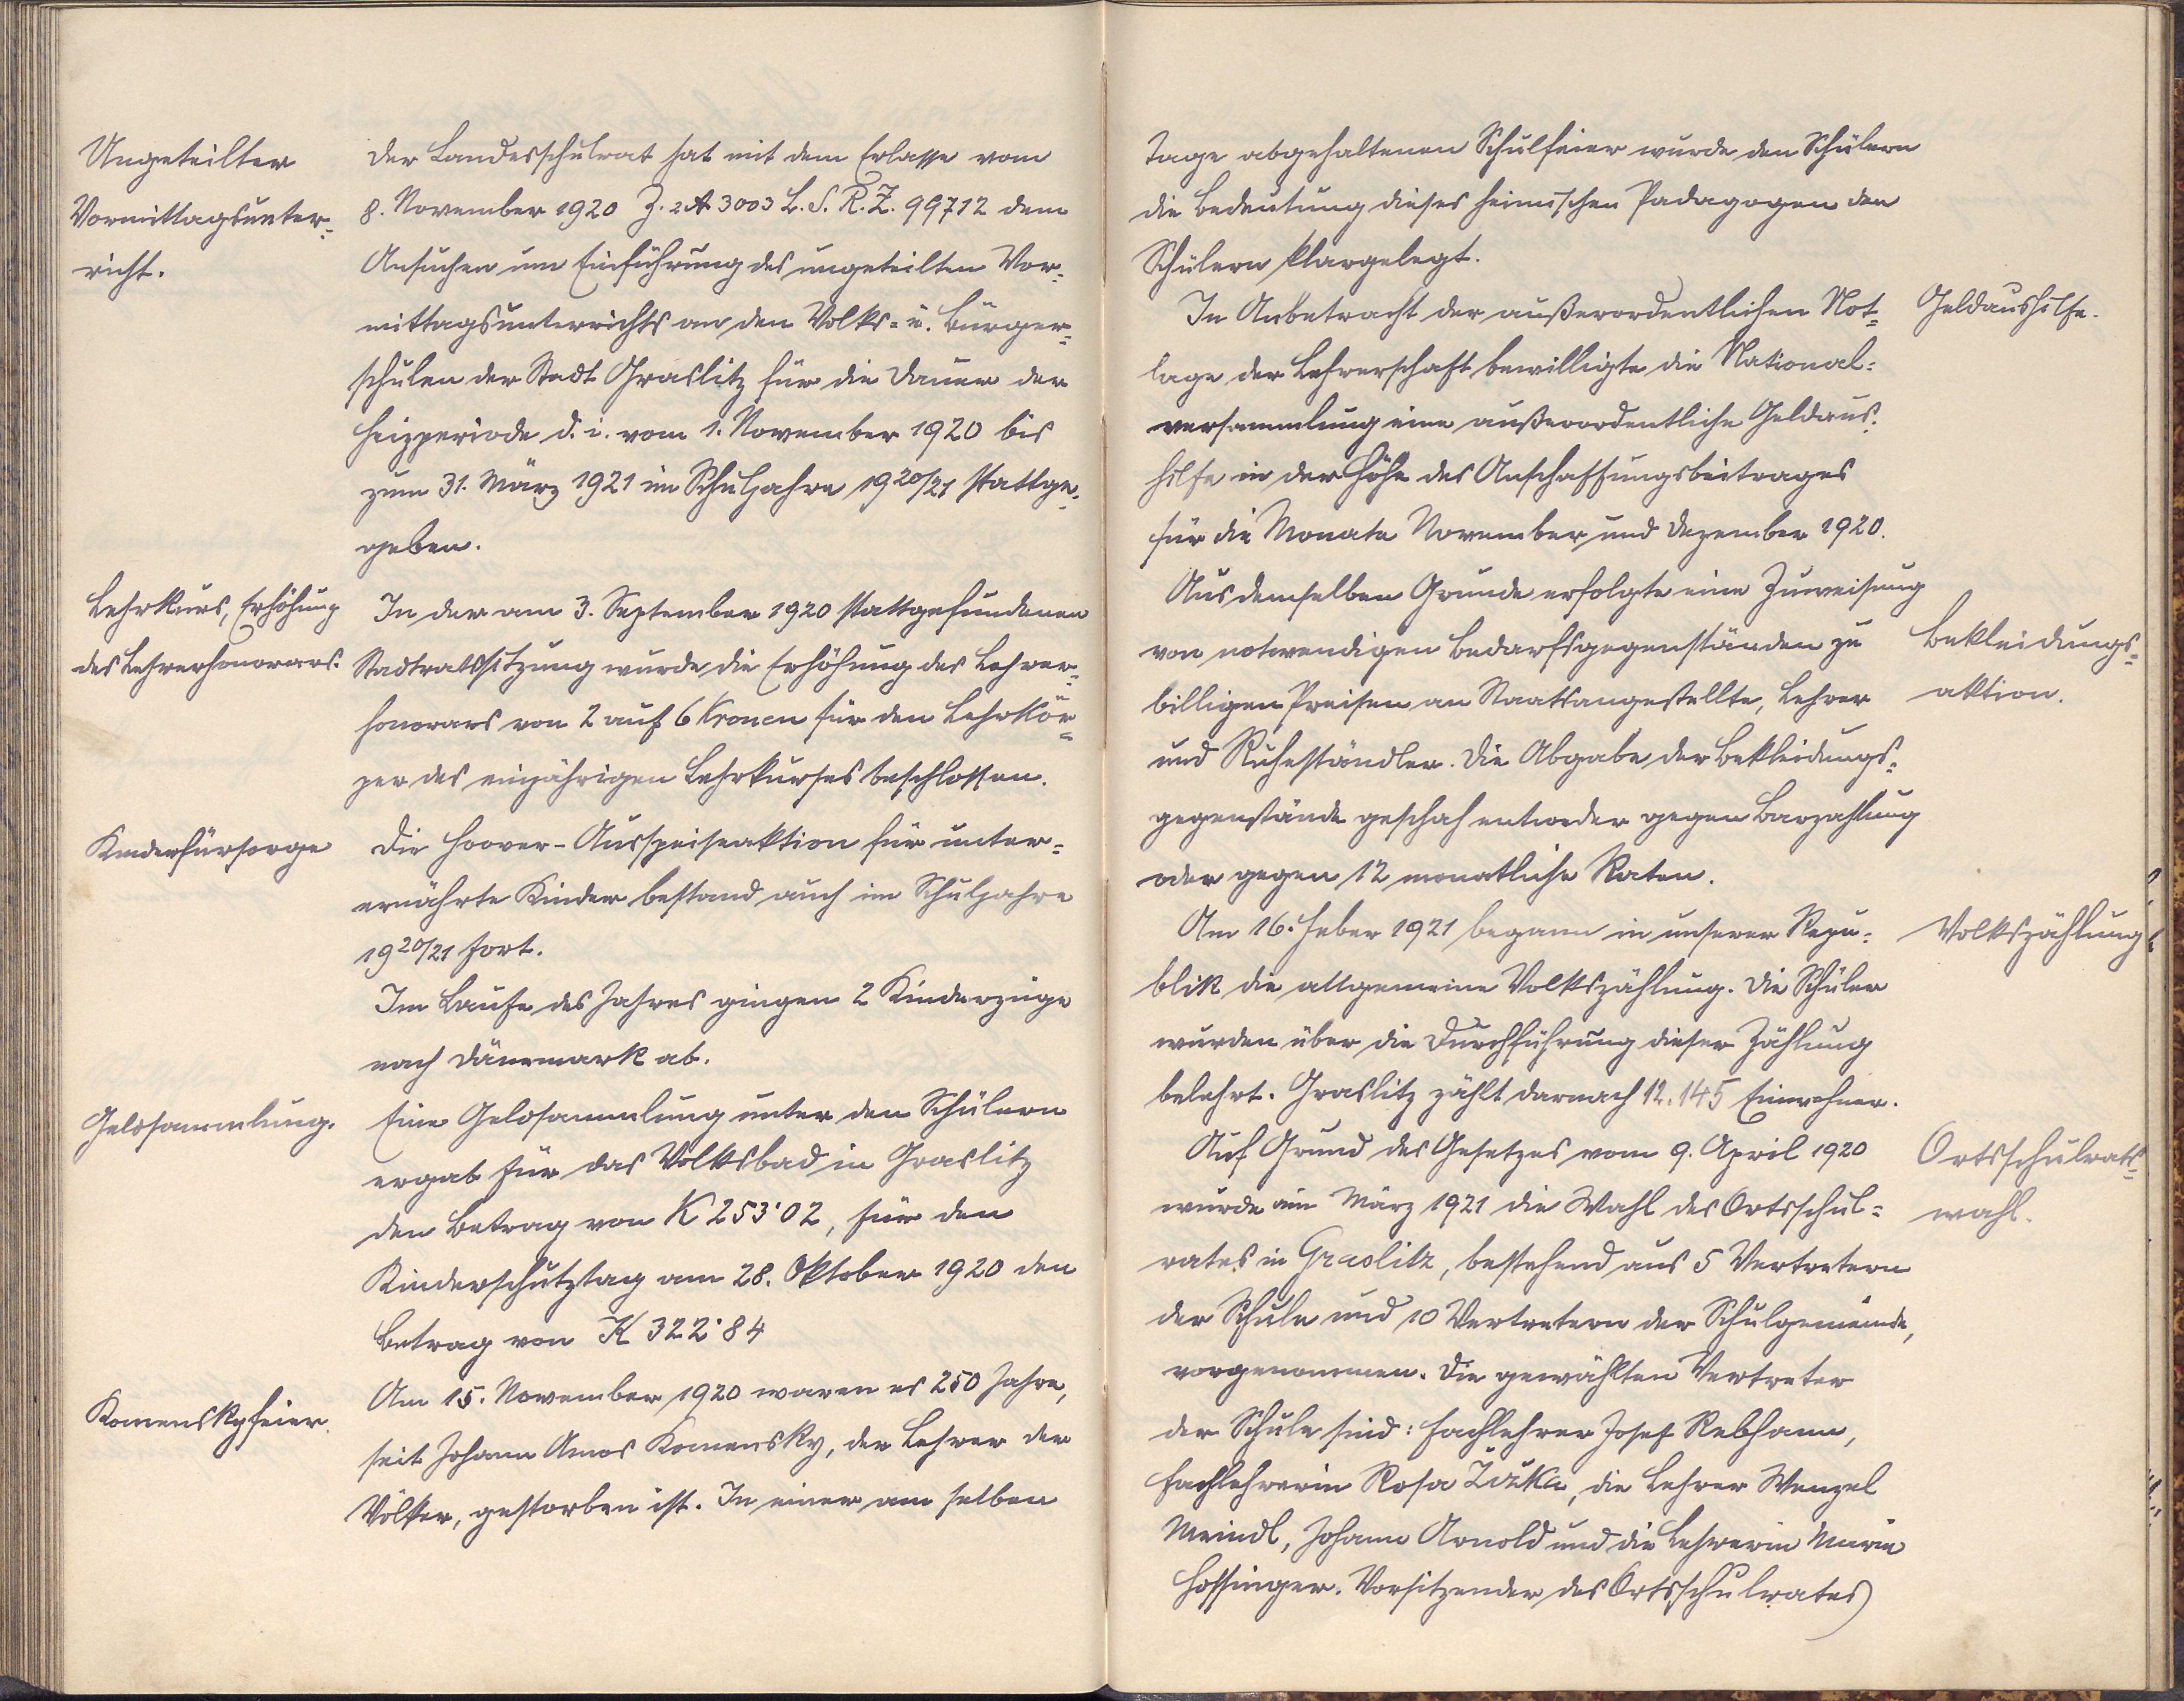 Ungeteilter
Vormittagsunter=
richt.
Der Landesschulrat hat mit dem Erlasse vom
8. November 1920 Z. 2 A 3003 L. S. R. Z. 99712 dem
Ansuchen um Einführung des ungeteilten Vor=
mittagsunterrichts an den Volks= u. Bürger=
schulen der Stadt Graslitz für die Dauer der
Heizperiode d. i. vom 1. November 1920 bis
zum 31. März 1921 im Schuljahre 1920/21 stattge=
geben.
Lehrkurs, Erhöhung
des Lehrerhonorars.
In der am 3. September 1920 stattgefundenen
Stadtratssitzung wurde die Erhöhung des Lehrer=
honorars von 2 auf 6 Kronen für den Lehrkör=
per des einjährigen Lehrkurses beschlossen.
Kinderfürsorge
Die Hoover-Ausspeiseaktion für unter=
ernährte Kinder bestand auch im Schuljahre
1920/21 fort.
Im Laufe des Jahres gingen 2 Kinderzüge
nach Dänemark ab.
Geldsammlung.
Eine Geldsammlung unter den Schülern
ergab für das Volksbad in Graslitz
den Betrag von K 253·02, für den
Kinderschutztag am 28. Oktober 1920 den
Betrag von K 322·84
Komenskyfeier.
Am 15. November 1920 waren es 250 Jahre,
seit Johann Amos Komensky, der Lehrer der
Völker, gestorben ist. In einer am selben
Tage abgehaltenen Schulfeier wurde den Schülern
die Bedeutung dieses heimischen Padagogen den
Schülern klargelegt.
In Anbetracht der außerordentlichen Not=
lage der Lehrerschaft bewilligte die National=
versammlung eine außerordentliche Geldaus=
hilfe in der Höhe des Anschaffungsbeitrages
für die Monate November und Dezember 1920.
Geldaushilfe.
Aus demselben Grunde erfolgte eine Zuweisung
von notwendigen Bedarfsgegenständen zu
billigen Preisen an Staatsangestellte, Lehrer
und Ruheständler. Die Abgabe der Bekleidungs=
gegenstände geschah entweder gegen Barzahlung
oder gegen 12 monatliche Raten.
Bekleidungs=
aktion.
Am 16. Feber 1921 begann in unserer Repu=
blik die allgemeine Volkszählung. Die Schüler
wurden über die Durchführung dieser Zählung
belehrt. Graslitz zählt darnach 12.145 Einwohner.
Volkszählung
Auf Grund des Gesetzes vom 9. April 1920
wurde im März 1921 die Wahl des Ortsschul=
rates in Graslitz, bestehend aus 5 Vertretern
der Schule und 10 Vertretern der Schulgemeinde,
vorgenommen. Die gewählten Vertreter
der Schule sind: Fachlehrer Josef Rebhann,
Fachlehrerin Rosa Zuška, die Lehrer Wenzel
Meindl, Johann Arnold und die Lehrerin Marie
Hossinger. Vorsitzender des Ortsschulrates
Ortsschulrats=
wahl.